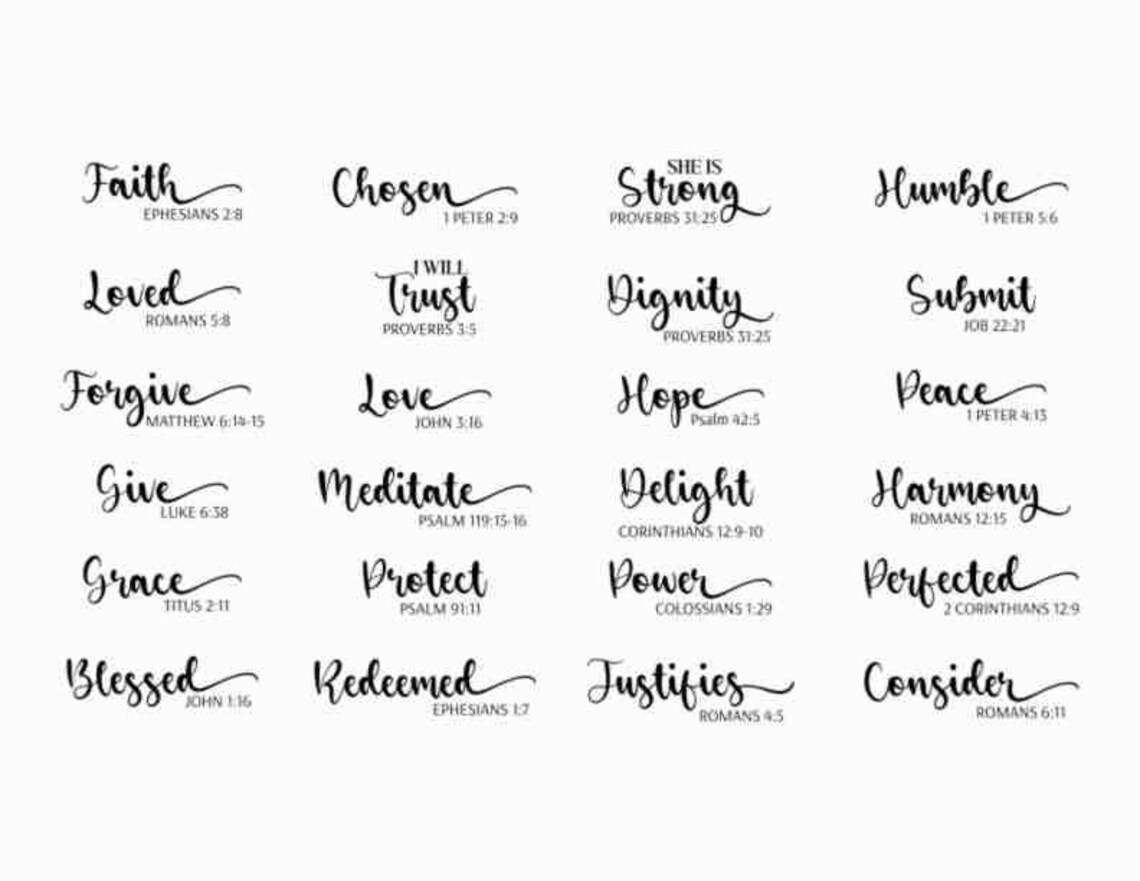 Faith
EPHESIANS 2:8
Chosen
1 PETER 2:9
SHE IS
Strong
PROVERBS 31:25
Humble
1 PETER 5:6
Loved
ROMANS 5:8
I WILL
Trust
PROVERBS 3:5
Dignity
PROVERBS 31:25
Submit
JOB 22:21
Forgive
MATTHEW 6:14-15
Love
JOHN 3:16
Hope
Psalm 42:5
Peace
1 PETER 4:13
Give
LUKE 6:38
Meditate
PSALM 119:15-16
Delight
CORINTHIANS 12:9-10
Harmony
ROMANS 12:15
Grace
TITUS 2:11
Protect
PSALM 91:11
Power
COLOSSIANS 1:29
Perfected
2 CORINTHIANS 12:9
Blessed
JOHN 1:16
Redeemed
EPHESIANS 1:7
Justifies
ROMANS 4:5
Consider
ROMANS 6:11